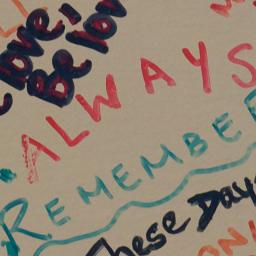 love,
Be
ALWAYS
REMEMBE
These Days